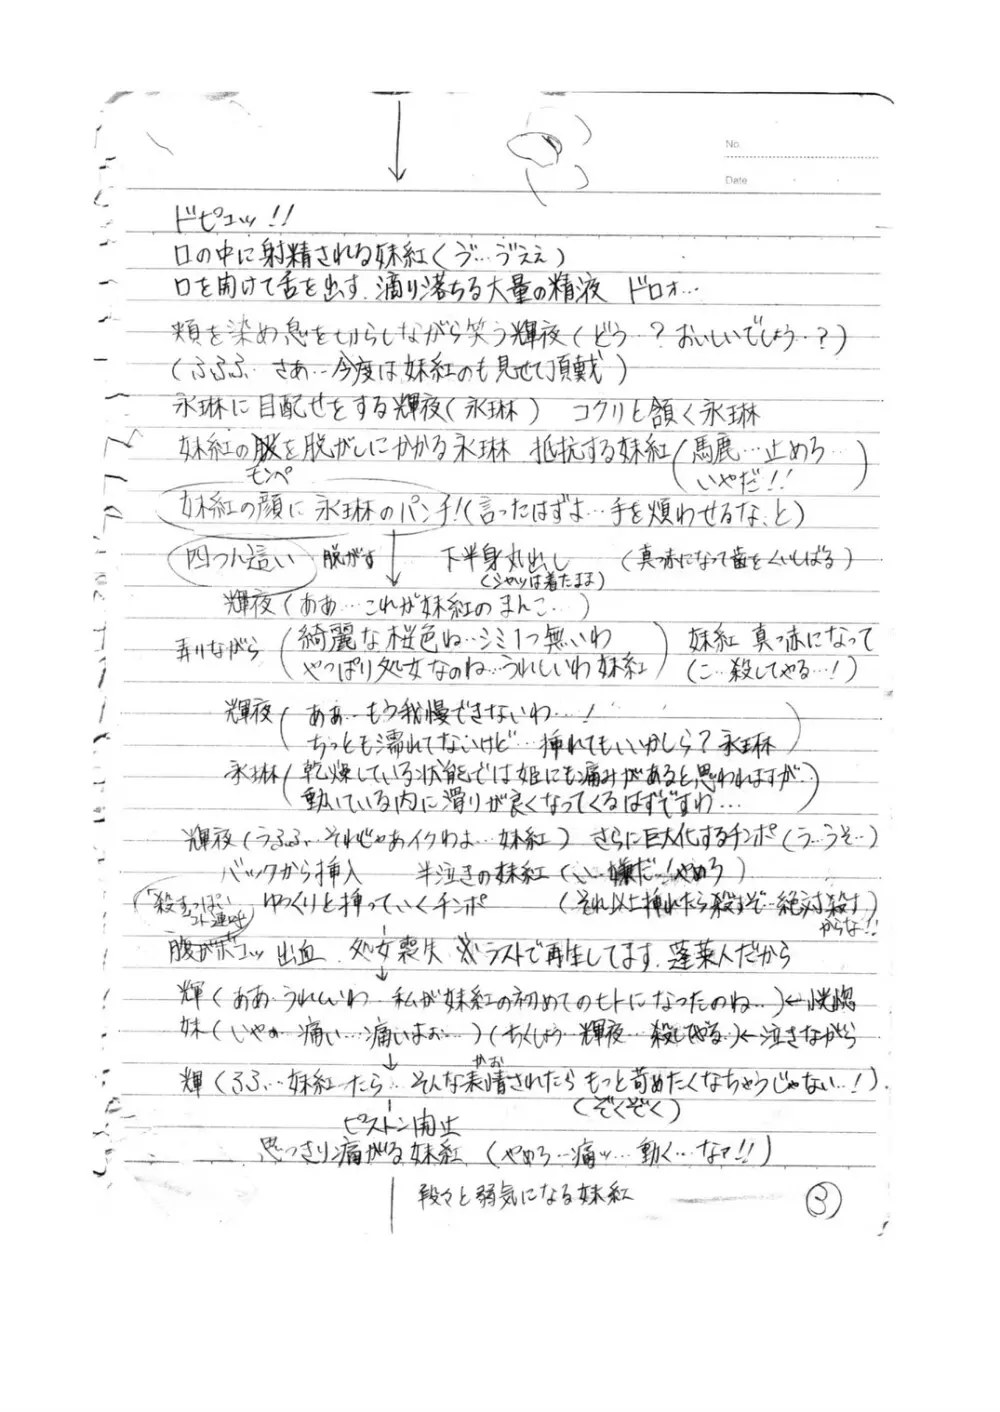 No.
Date
ドピュッ!!
口の中に射精される妹紅(ヴ…ヴえぇ)
口を開けて舌を出す.滴り落ちる大量の精液 ドロォ…
頬を染め息を切らしながら笑う輝夜(どう…?おいしいでしょう…?)
(ふふふ…さあ…今度は妹紅のも見せて頂戴)
永琳に目配せをする輝夜(永琳) コクリと頷く永琳
妹紅の服を脱がしにかかる永琳 抵抗する妹紅(馬鹿…止めろ…
モンペ いやだ!!)
妹紅の顔に永琳のパンチ!(言ったはずよ…手を煩わせるな、と)
四つん這い 脱がす 下半身丸出し (真っ赤になって歯をくいしばる)
(シャツは着たまま)
輝夜(ああ…これが妹紅のまんこ…)
弄りながら(綺麗な桜色ね…シミ1つ無いわ 妹紅 真っ赤になって
やっぱり処女なのね…うれしいわ妹紅) (こ…殺してやる…!)
輝夜(ああ…もう我慢できないわ…!
ちっとも濡れてないけど…挿れてもいいかしら?永琳)
永琳(乾燥している状態では姫にも痛みがあると思われますが…
動いている内に滑りが良くなってくるはずですわ…)
輝夜(うふふ…それじゃあイクわよ…妹紅) さらに巨大化するチンポ(う…うそ…)
バックから挿入 半泣きの妹紅(い…嫌だ…!やめろ)
「殺すっぽいコト連呼 ゆっくりと挿っていくチンポ (それ以上挿れたら殺すぞ…絶対殺す
からな!!)
腹がボコッ 出血 処女喪失 ※ラストで再生してます.蓬莱人だから
輝(ああ…うれしいわ…私が妹紅の初めてのヒトになったのね…)←恍惚
妹(いやぁ…痛い…痛いよぉ…)(ちくしょう…輝夜…殺してやる)←泣きながら
輝(ふふ…妹紅たら…そんな表情されたらもっと苛めたくなちゃうじゃない…!)
かお
(ぞくぞく)
ピストン開始
思っきり痛がる妹紅 (やめろ…痛ッ…動く…なァ!!)
段々と弱気になる妹紅
3